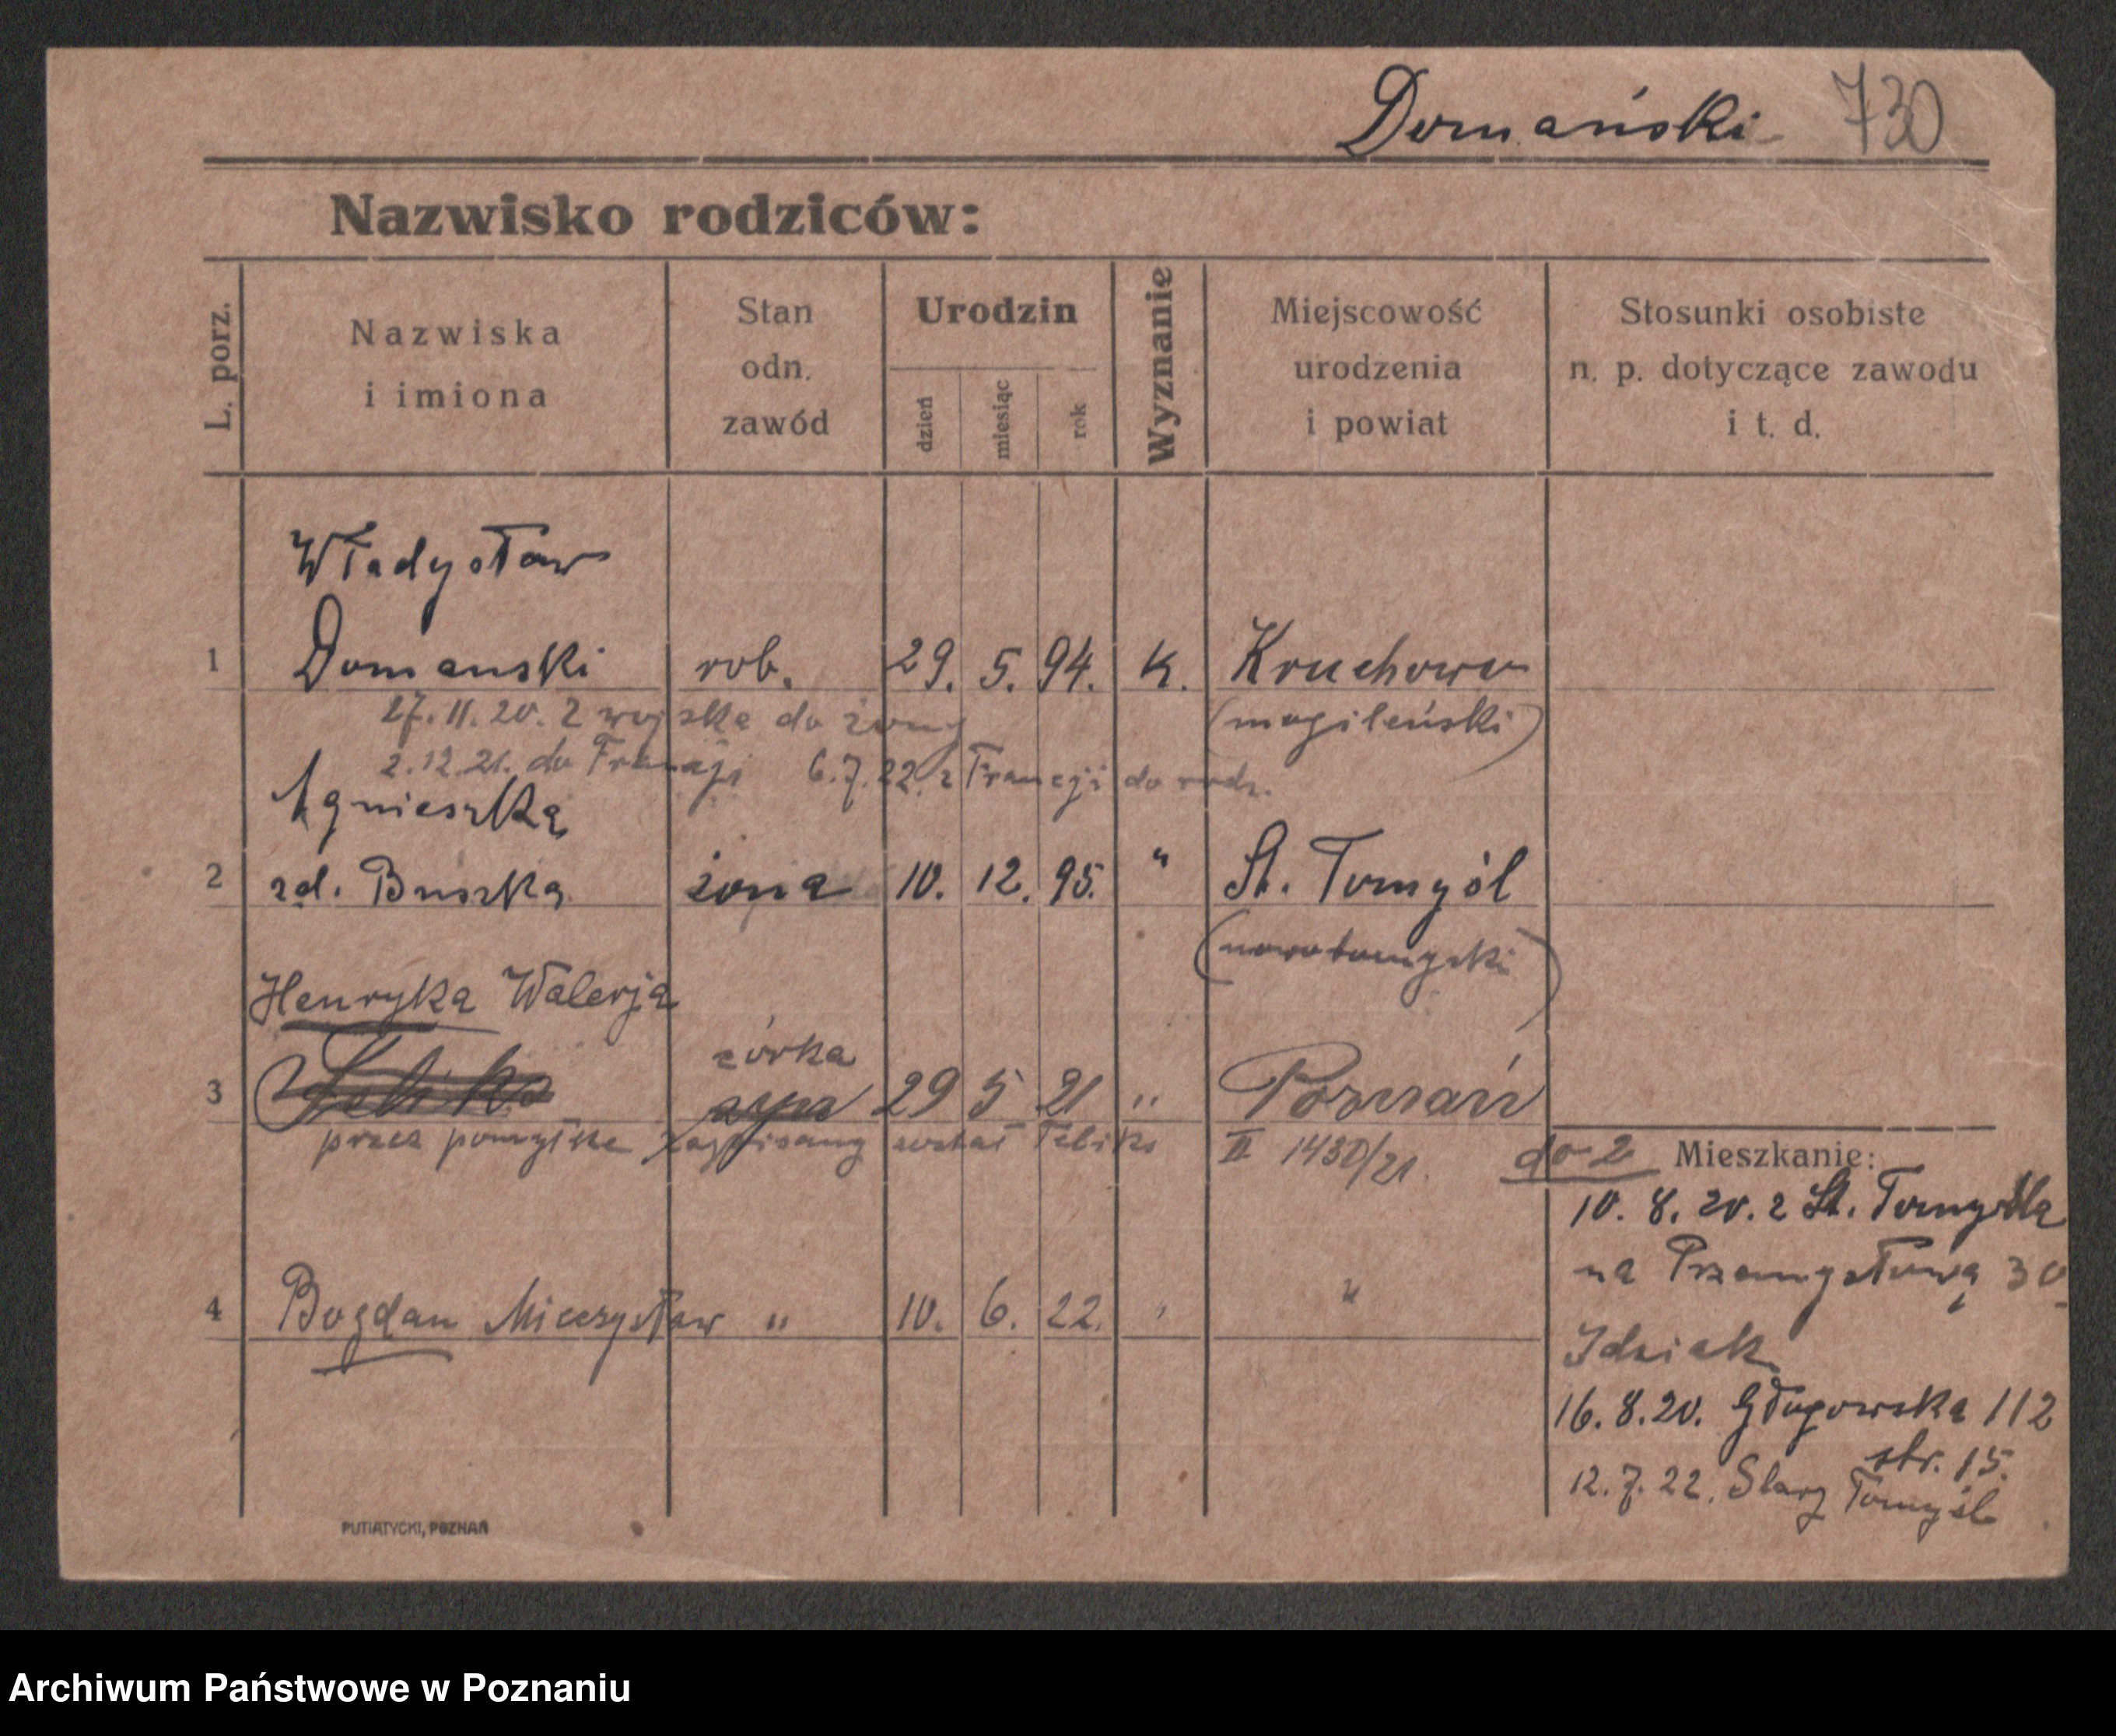 Domański 730
Nazwisko rodziców:
L. porz.
Nazwiska
i imiona
Stan
odn.
zawód
Urodzin
dzień
miesiąc
rok
Wyznanie
Miejscowość
urodzenia
i powiat
Stosunki osobiste
n. p. dotyczące zawodu
i t. d.
Władysław
1 Domanski rob. 29. 5. 94. k. Kruchowo
27. 11. 20. z wojska do żony (mogileński)
2. 12. 21. do Francji 6. 7. 22. z Francji do rodz.
Agnieszka
2 zd. Buszka żona 10. 12. 95. " St. Tomyśl
(nowotomyski)
Henryka Walerja
córka
3 Feliks syn 29 5 21 " Poznań
przez pomyłkę zapisany został Feliks II 1430/21.
do 2 Mieszkanie:
10. 8. 20. z St. Tomyśla
na Przemysłową 30
4 Bogdan Mieczysław " 10. 6. 22. " "
Idziak
16. 8. 20. Głogowska 112
str. 15.
12. 7. 22. Stary Tomyśl
PUTIATYCKI, POZNAŃ
Archiwum Państwowe w Poznaniu